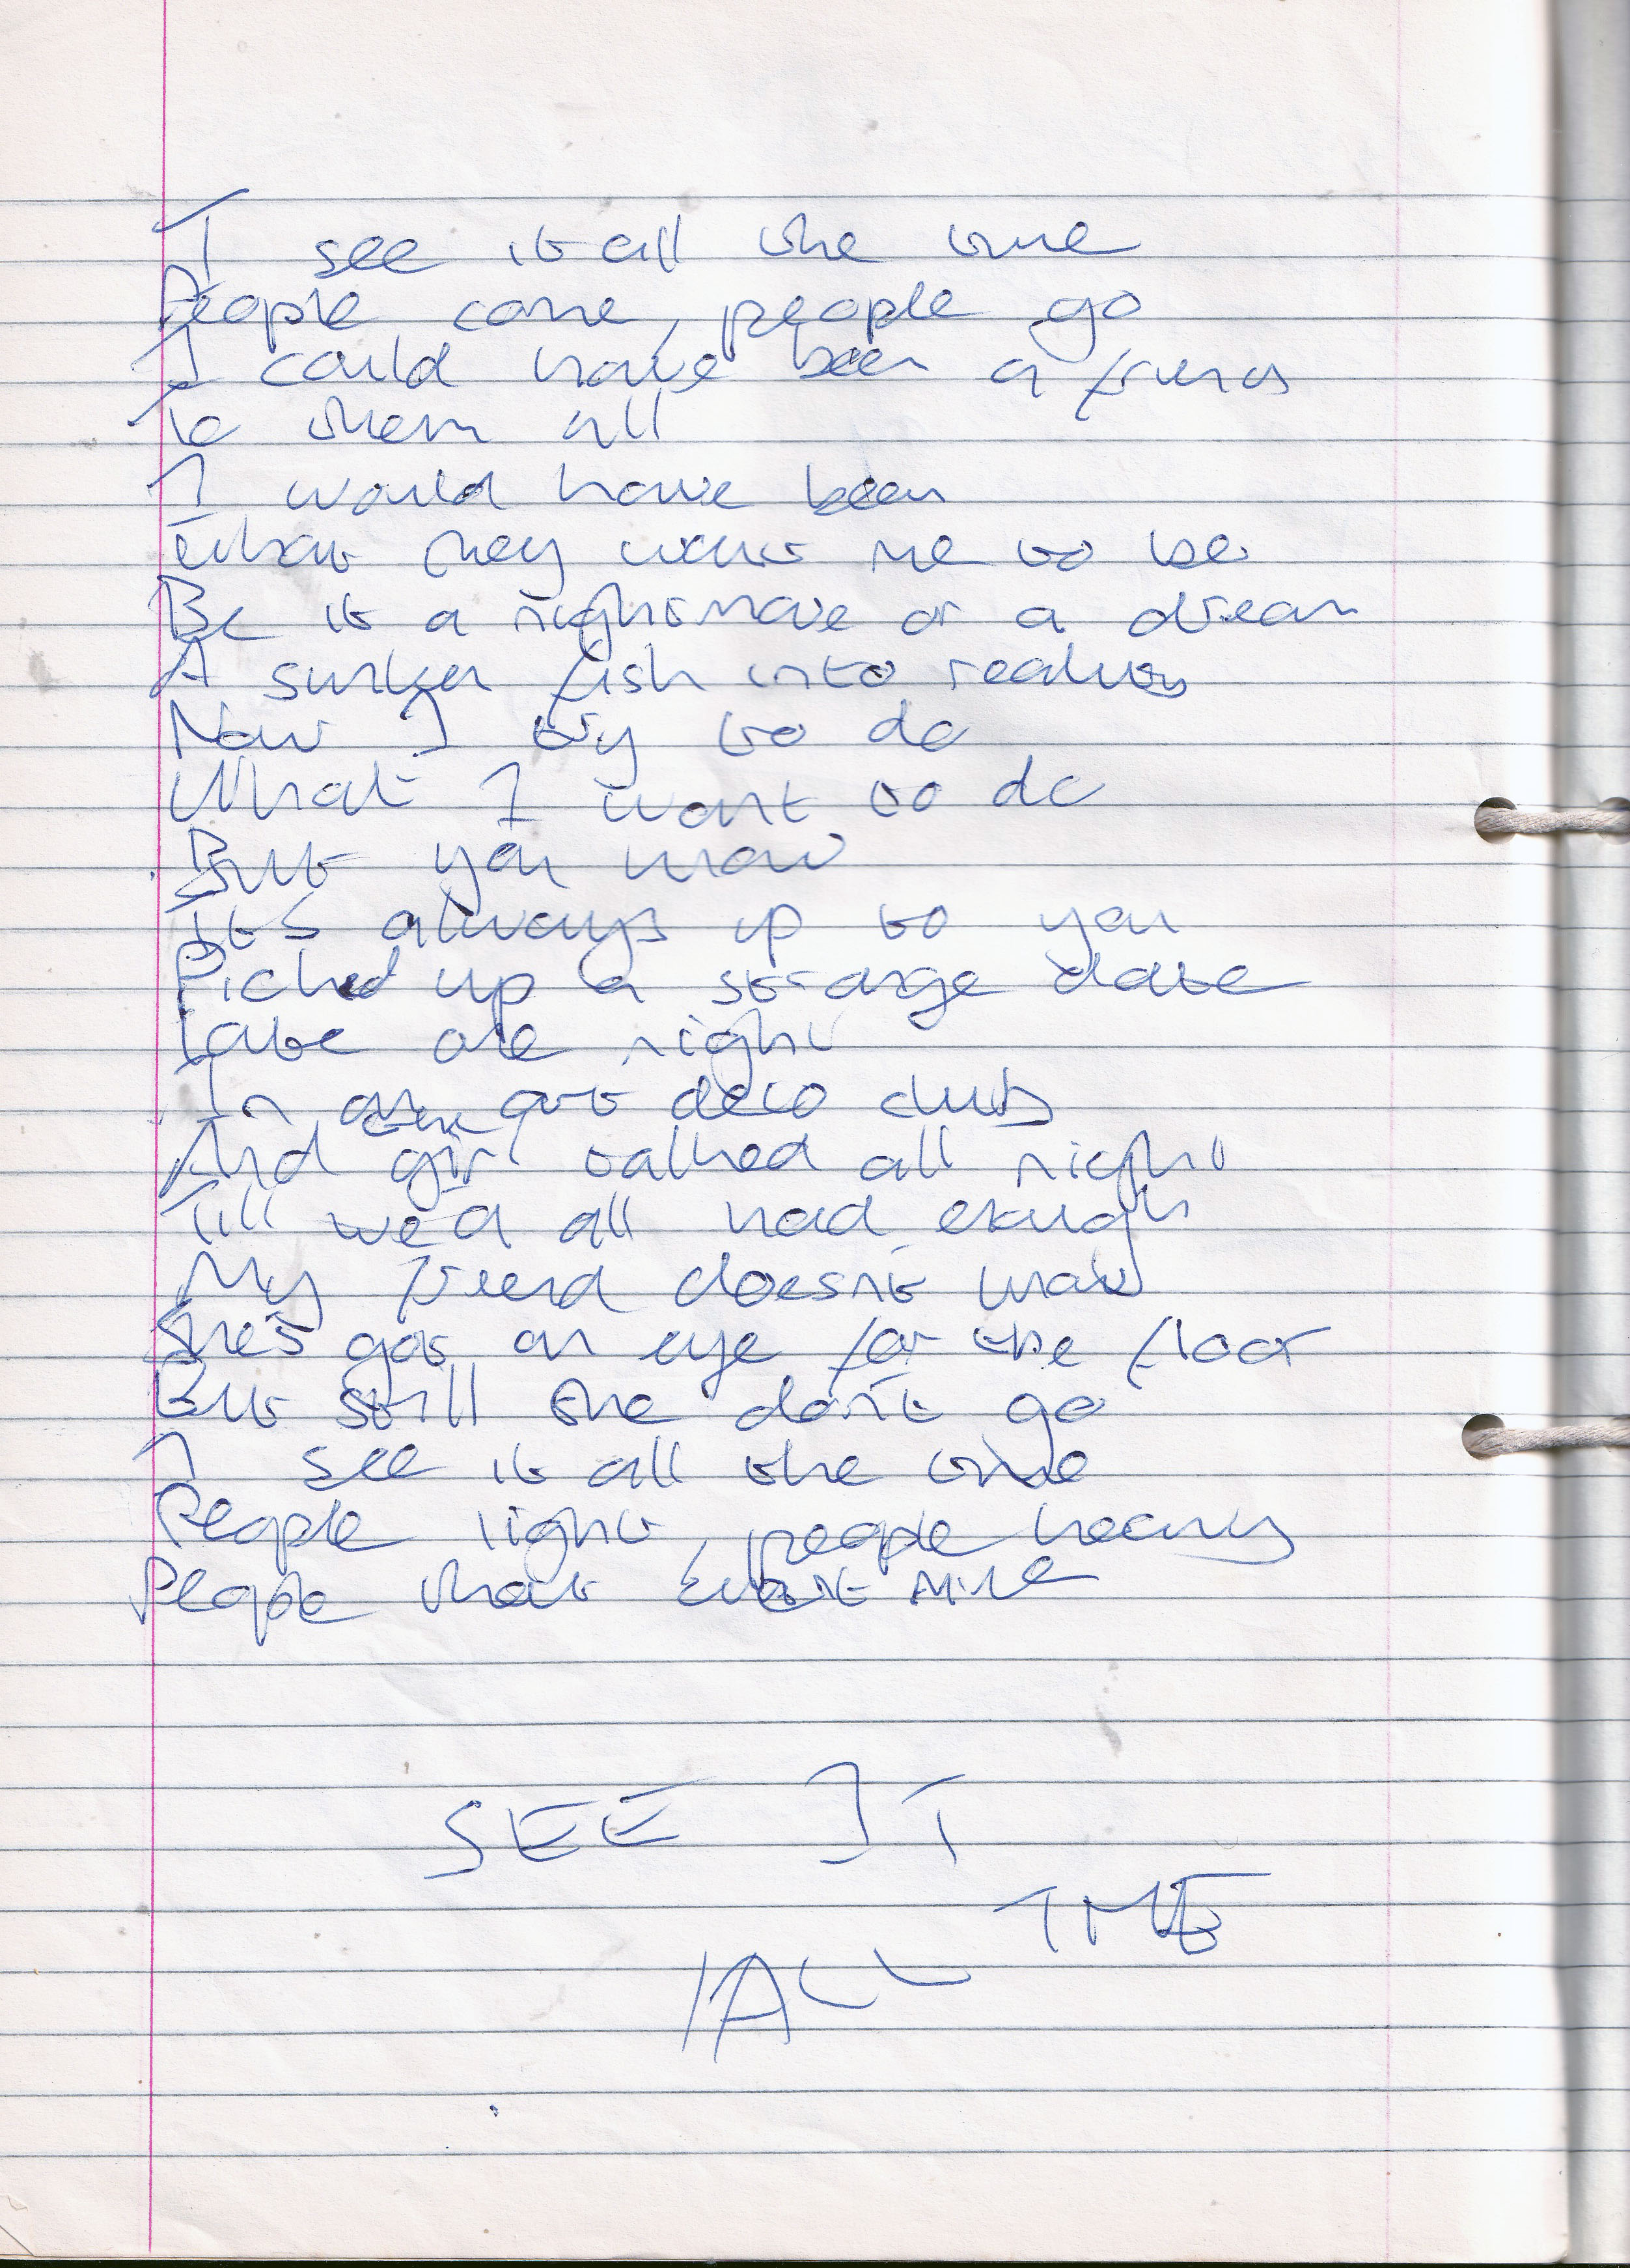 I see it all the time
People come, people go
I could have been a friend
To them all
I would have been
What they want me to be
Be it a nightmare or a dream
A sunken fish into reality
Now I try to do
What I want to do
But you know
It's always up to you
Picked up a strange date
Late one night
In an art deco club
And girl talked all night
Till we'd all had enough
My friend doesn't know
She's got an eye for the floor
But still she don't go
I see it all the time
People light, people heavy
People that aren't mine
SEE IT
TIME
ALL